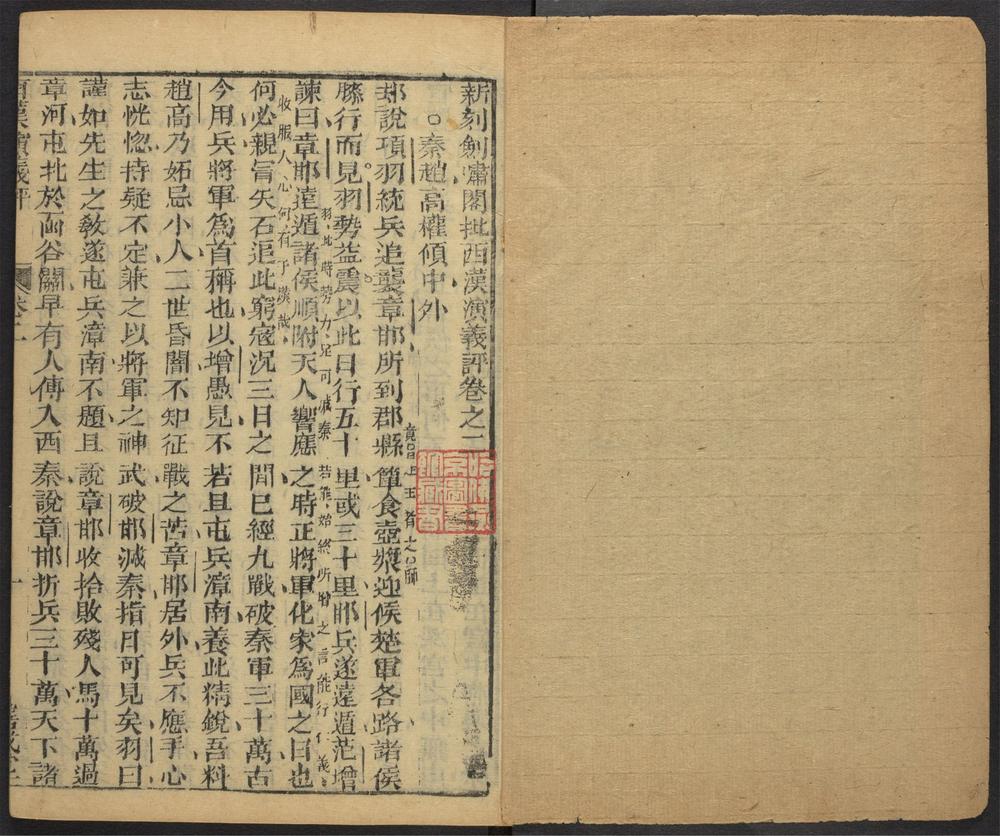 新刻劍嘯閣批西漢演義評卷之二
秦趙高權傾中外
却說項羽統兵追襲章邯所到郡縣簞食壺漿迎候楚軍各路諸侯
膝行而見羽勢益震以此日行五十里或三十里邯兵遂遠遁范增
諫曰章邯遠遁諸侯順附天人響應之時正將軍化家為國之日也
收服人心何有于漢哉
何必親冒矢石追此窮寇況三日之間已經九戰破秦軍三十萬古
今用兵將軍為首稱也以增愚見不若且屯兵漳南養此精銳吾料
趙高乃妬忌小人二世昏闇不知征戰之苦章邯居外兵不應手心
志恍惚持疑不定兼之以將軍之神武破邯滅秦指日可見矣羽曰
謹如先生之教遂屯兵漳南不題且說章邯收拾敗殘人馬十萬過
章河屯扎於函谷關早有人傳入西秦說章邯折兵三十萬天下諸
西漢演義評
卷二
一